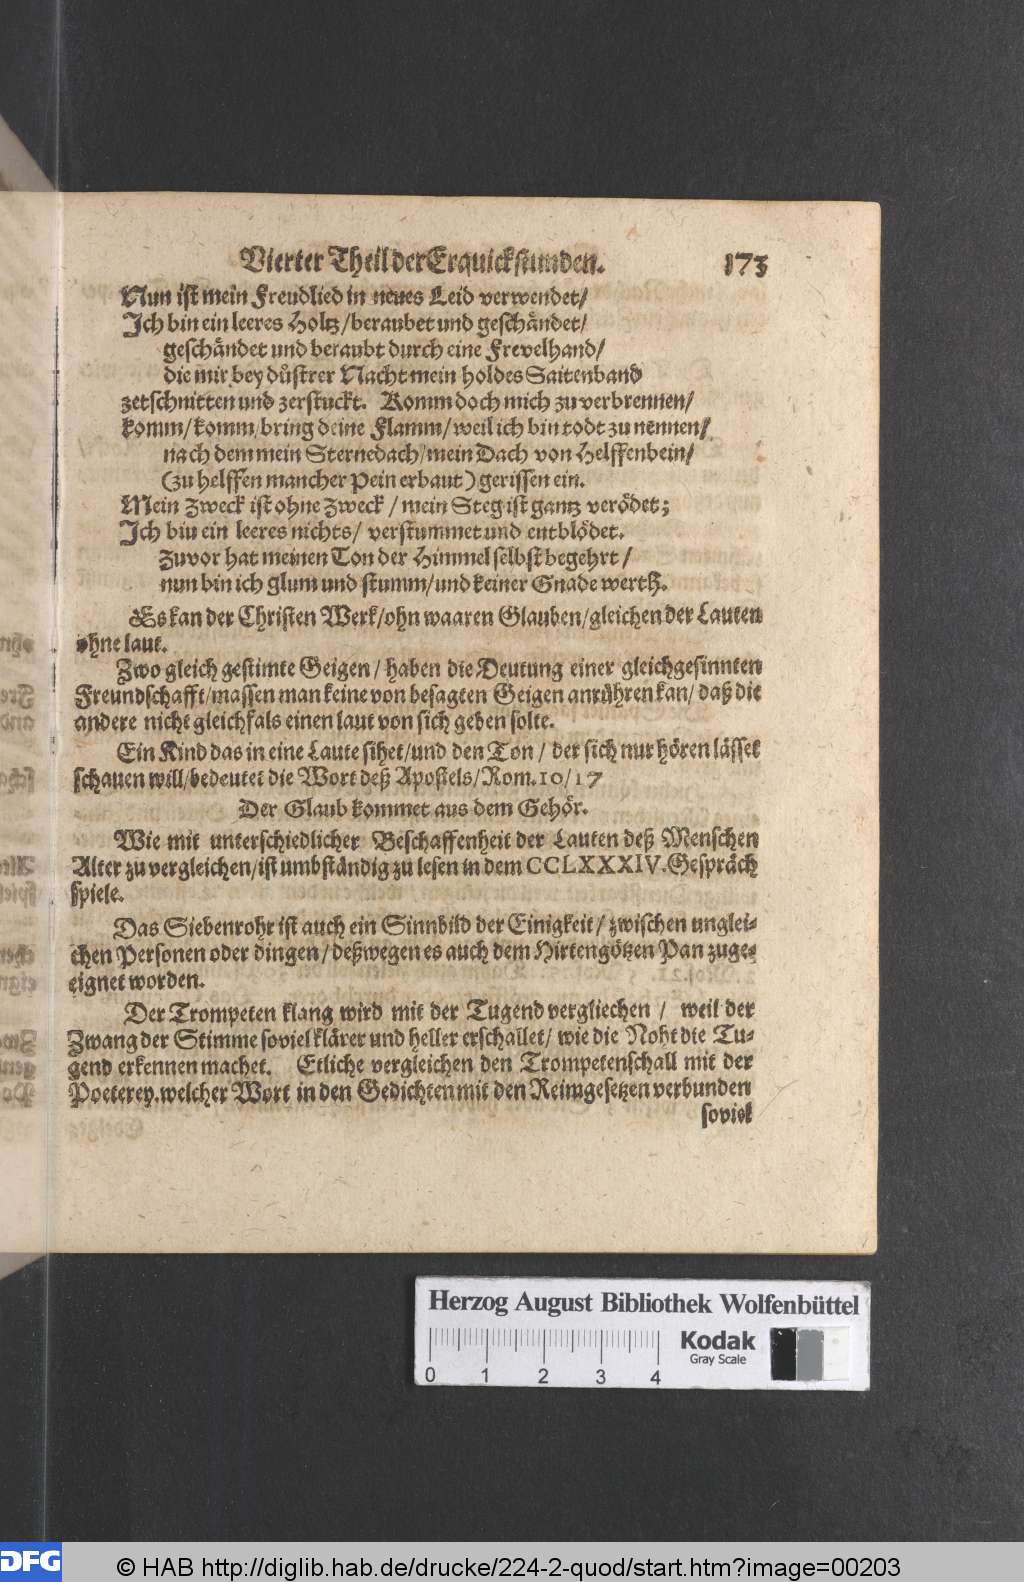 Vierter Theil der Erquickstunden. 173
Nun ist mein Freudlied in neues Leid verwendet/
Ich bin ein leeres Holtz/beraubet und geschändet/
geschändet und beraubt durch eine Frevelhand/
die mir bey düstrer Nacht mein holdes Saitenband
zetschnitten und zerstuckt. Komm doch mich zu verbrennen/
komm/komm/bring deine Flamm/weil ich bin todt zu nennen/
nach dem mein Sternedach/mein Dach von Helffenbein/
(zu helffen mancher Pein erbaut) gerissen ein.
Mein Zweck ist ohne Zweck / mein Steg ist gantz verödet;
Ich biu ein leeres nichts/ verstummet und entblödet.
Zuvor hat meinen Ton der Himmel selbst begehrt /
nun bin ich glum und stumm/und keiner Gnade werth.
Es kan der Christen Werk/ohn waaren Glauben/gleichen der Lauten
ohne laut.
Zwo gleich gestimte Geigen / haben die Deutung einer gleichgesinnten
Freundschafft/massen man keine von besagten Geigen anrühren kan/ daß die
andere nicht gleichfals einen laut von sich geben solte.
Ein Kind das in eine Laute sihet/und den Ton / der sich nur hören lässet
schauen will/bedeutet die Wort deß Apostels/Rom. 10/17
Der Glaub kommet aus dem Gehör.
Wie mit unterschiedlicher Beschaffenheit der Lauten deß Menschen
Alter zu vergleichen/ist umbständig zu lesen in dem CCLXXXIV. Gespräch
spiele.
Das Siebenrohr ist auch ein Sinnbild der Einigkeit / zwischen unglei-
chen Personen oder dingen / deßwegen es auch dem Hirtengötzen Pan zuge-
eignet worden.
Der Trompeten klang wird mit der Tugend vergliechen / weil der
Zwang der Stimme soviel klärer und heller erschallet/ wie die Noht die Tu-
gend erkennen machet. Etliche vergleichen den Trompetenschall mit der
Poeterey, welcher Wort in den Gedichten mit den Reimgesetzen verbunden
soviel
Herzog August Bibliothek Wolfenbüttel
Kodak
Gray Scale
0 1 2 3 4
DFG
© HAB http://diglib.hab.de/drucke/224-2-quod/start.htm?image=00203